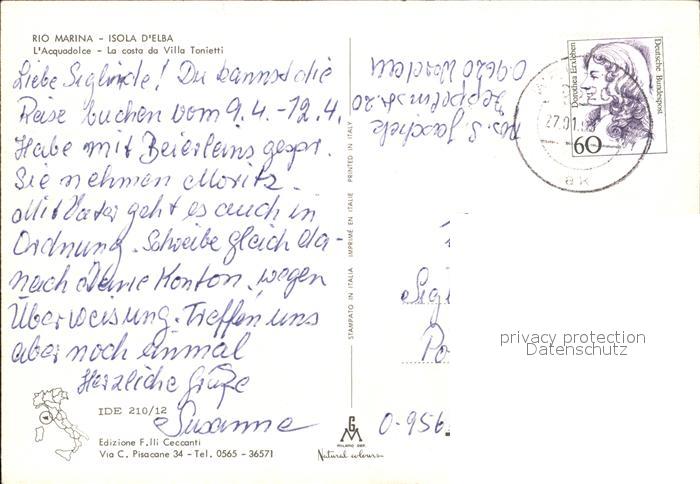 RIO MARINA - ISOLA D'ELBA
L'Acquadolce - La costa da Villa Tonietti
Liebe Siglinde! Du kannst die
Reise buchen vom 9.4. - 12.4.
Habe mit Beierleins gespr.
Sie nehmen Moritz.
Mit Vater geht es auch in
Ordnung. Schreibe gleich da-
nach Deine Konton. wegen
Überweisung. Treffen uns
aber noch einmal
Herzliche Grüße
Susanne
IDE 210/12
Edizione F.lli Ceccanti
Via C. Pisacane 34 - Tel. 0565 - 36571
STAMPATO IN ITALIA IMPRIMÉ EN ITALIE PRINTED IN ITALY
GM
MILANO DEP.
Natural colour
Abs. S. Jaschek
Zeppelinstr. 20
O-9620 Werdau
Dorothea Erxleben
Deutsche Bundespost
60
27.01.93
ak
Sigl
Po
O-956
privacy protection
Datenschutz